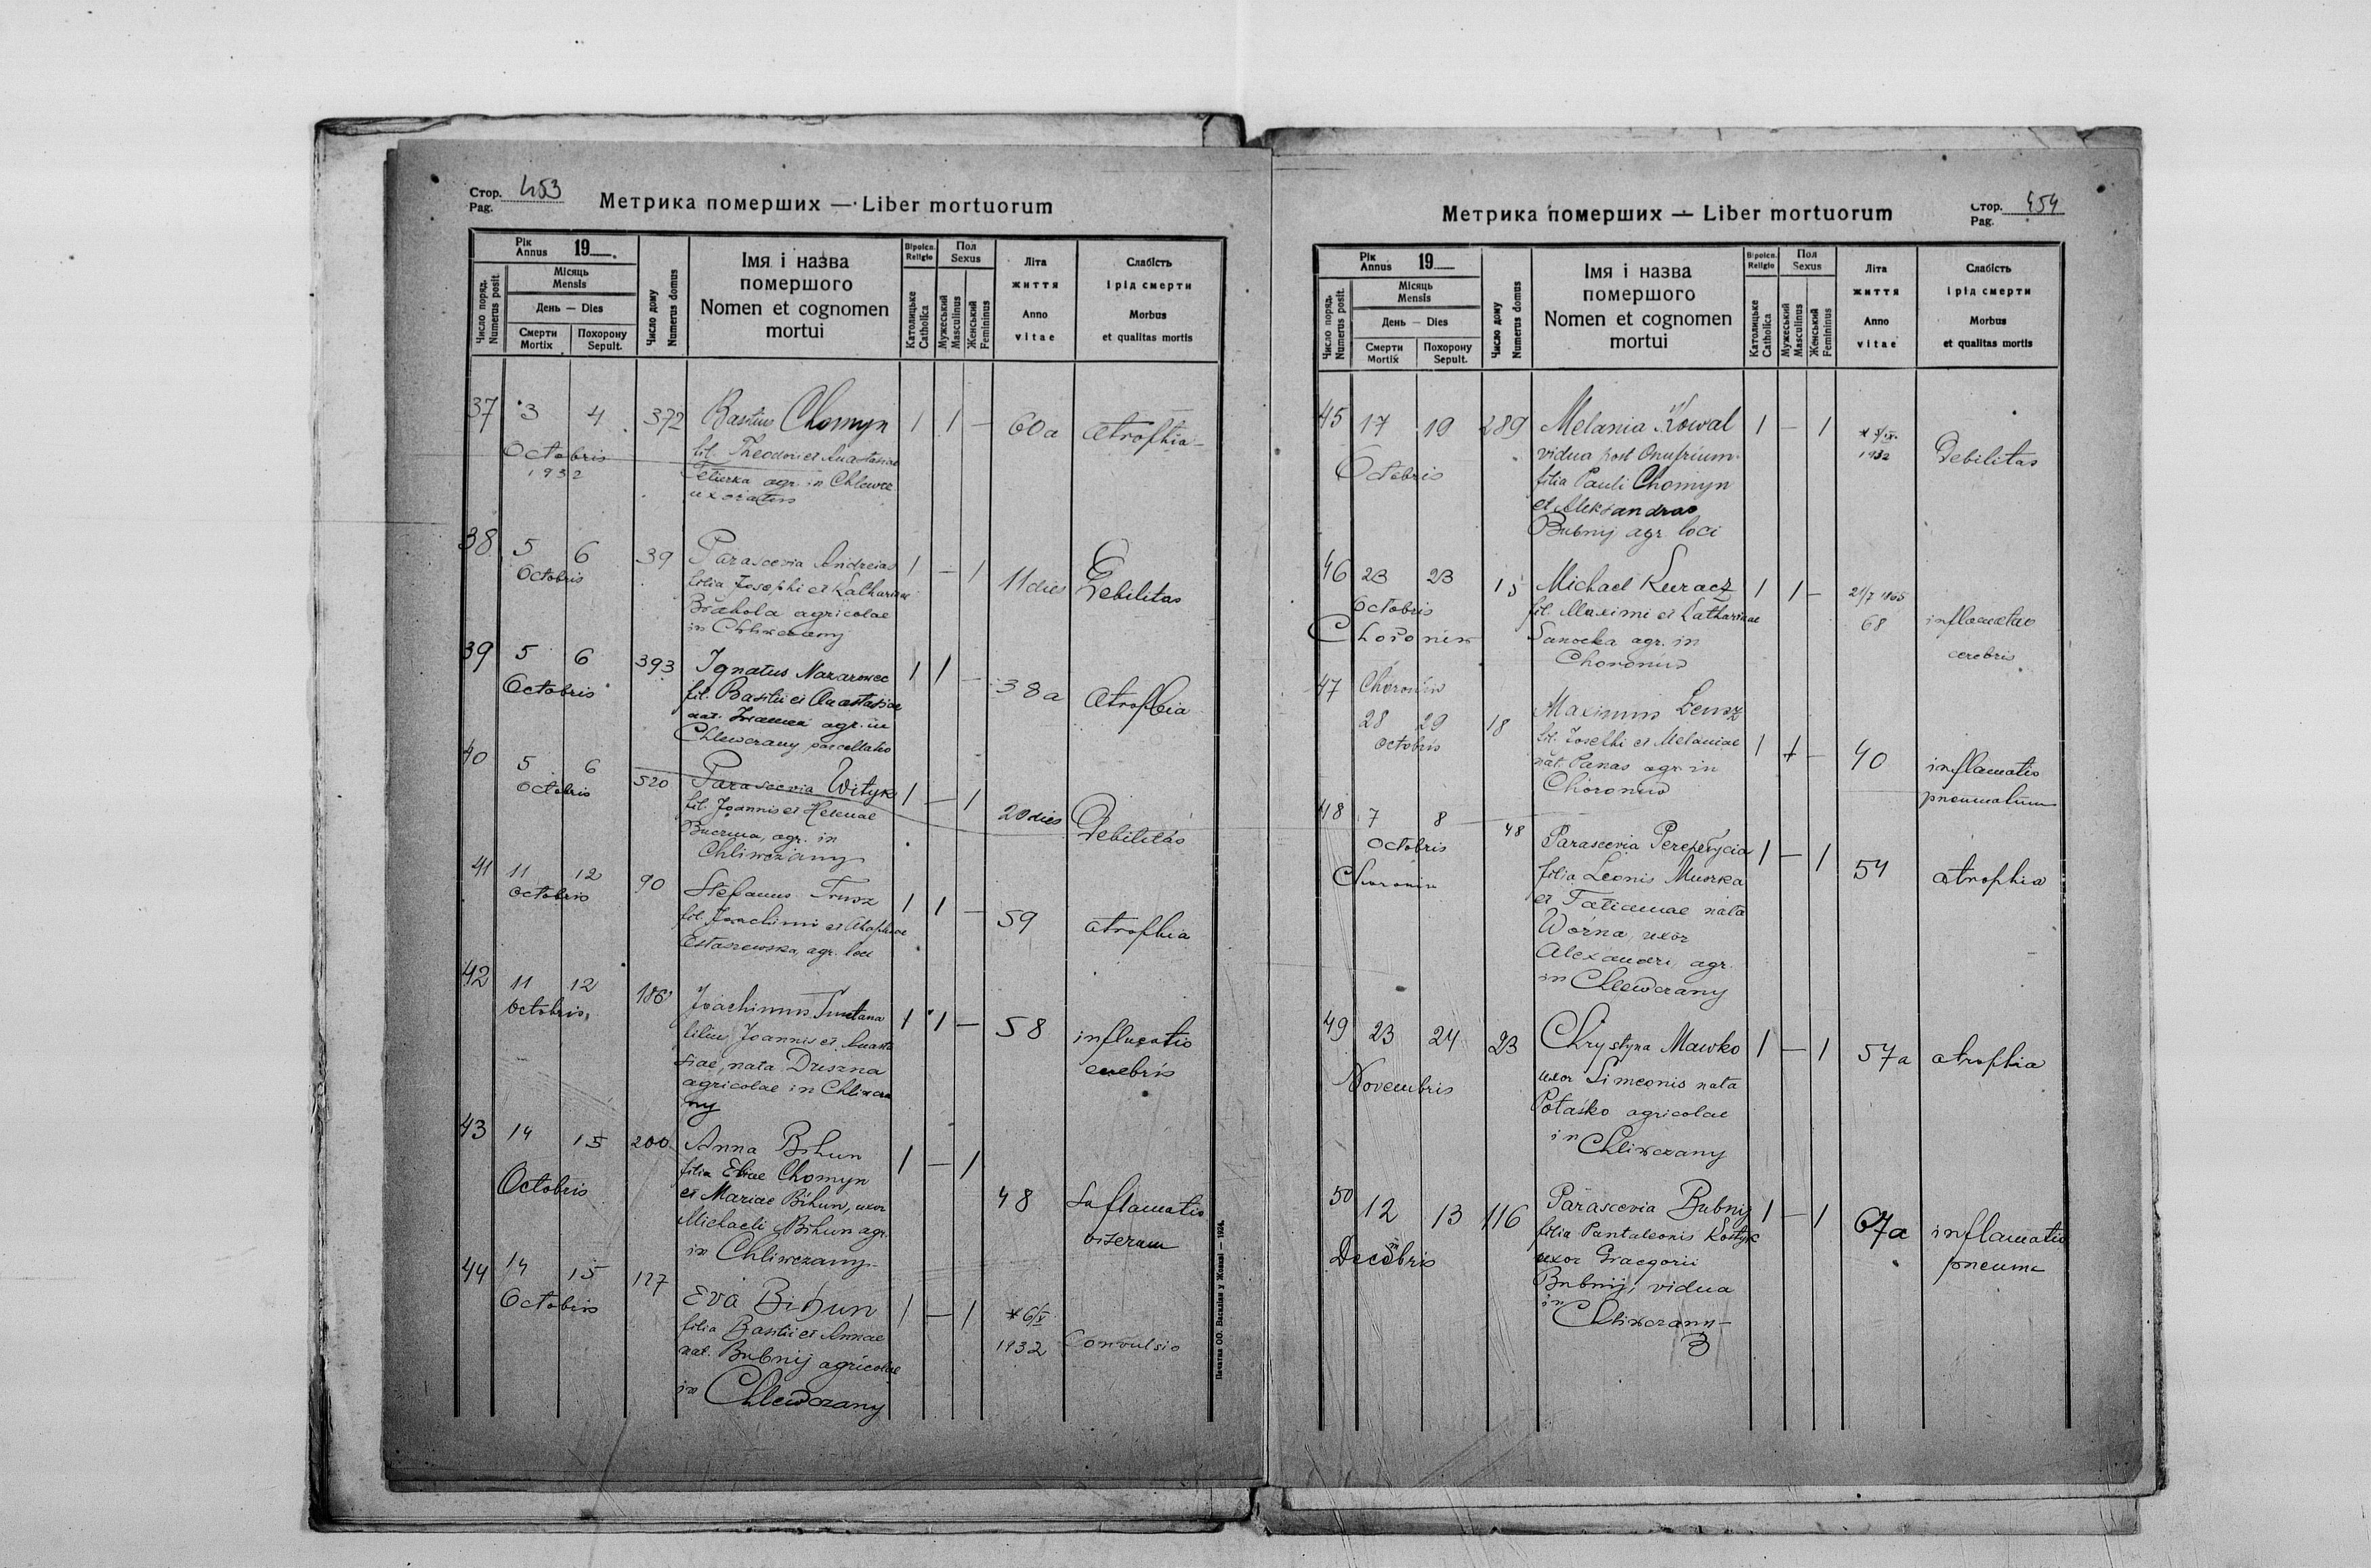 Стор. 453
Pag.
Метрика померших — Liber mortuorum
Рік
Annus 19
Місяць
Mensis
День — Dies
Число поряд.
Numerus posit.
Смерти
Mortix
Похорону
Sepult.
Число дому
Numerus domus
Імя і назва
помершого
Nomen et cognomen
mortui
Віроісп.
Religio
Католицьке
Catholica
Пол
Sexus
Мужеський
Masculinus
Женський
Femininus
Літа
життя
Anno
vitae
Слабість
і рід смерти
Morbus
et qualitas mortis
37 3 4 372 Basilius Chomyn 1 1 — 60a Atrophia
Octobris
1932
fil. Theodori et Anastasiae
agr. in Chlewcz.
uxoratus
38 5 6 39 Parascevia Andreias 1 — 1 11 dies Debilitas
Octobris
filia Josephi et Katharinae
agricolae
in Chliwczany
39 5 6 393 Ignatus Mazarowec 1 1 — 38a Atrophia
Octobris
fil. Basilii et Anastasiae
nat. agr. in
Chlewczany parcellatio
40 5 6 520 Parascevia Wityk 1 — 1 20 dies Debilitas
Octobris
fil. Joannis et Helenae
agr. in
Chliwczany
41 11 12 90 Stefanus Trusz 1 1 — 59 atrophia
Octobris
fil. Joachimi et
agr. loci
42 11 12 186 Joachimus Smetana 1 1 — 58
Octobris
filius Joannis et Anasta
siae, nata Duszna
agricolae in Chliwcza
ny
43 14 15 200 Anna Bihun 1 — 1 48 Inflamatio
Octobris
filia Eliae Chomyn
et Mariae Bihun, uxor
Michaeli Bihun agr.
in Chliwczany
44 14 15 127 Eva Bihun 1 — 1 * 6/V 1932 Convulsio
Octobris
filia Basilii et Annae
nat. Bubnij agricolae
in Chlewczany
Печатня ОО. Василіян у Жовкві — 1924.
Метрика померших — Liber mortuorum
Стор. 454
Pag.
Рік
Annus 19
Місяць
Mensis
День — Dies
Число поряд.
Numerus posit.
Смерти
Mortix
Похорону
Sepult.
Число дому
Numerus domus
Імя і назва
помершого
Nomen et cognomen
mortui
Віроісп.
Religio
Католицьке
Catholica
Пол
Sexus
Мужеський
Masculinus
Женський
Femininus
Літа
життя
Anno
vitae
Слабість
і рід смерти
Morbus
et qualitas mortis
45 17 19 289 Melania Kowal 1 — 1 1932 Debilitas
Octobris
vidua post Onufrium
filia Pauli Chomyn
et Aleksandrae
Bubnij agr. loci
46 23 23 15 Michael Kuracz 1 1 — 68
Octobris
Choronin
fil. Maximi et Katharinae
Sanocka agr. in
cerebris
47 Choronin
28 29 18 Maximus 1 1 — 40 inflamatio
Octobris
fil. Josephi et Melaniae
nat. Panas agr. in
pneumatum
48 7 8 48 Parascevia 1 — 1 54 atrophia
Octobris
Choronin
filia Leonis
et Tatianae nata
Worna, uxor
Alexandri, agr.
in Chlewczany
49 23 24 23 Chrystyna Mawko 1 — 1 57a atrophia
Novembris
uxor Simeonis nata
Potasko agricolae
in
Chliwczany
50 12 13 116 Parascevia Bubnij 1 — 1 67a inflamatio
Decembris
filia Pantaleonis Kostyk
uxor Graegorii
Bubnij, vidua
in
pneum